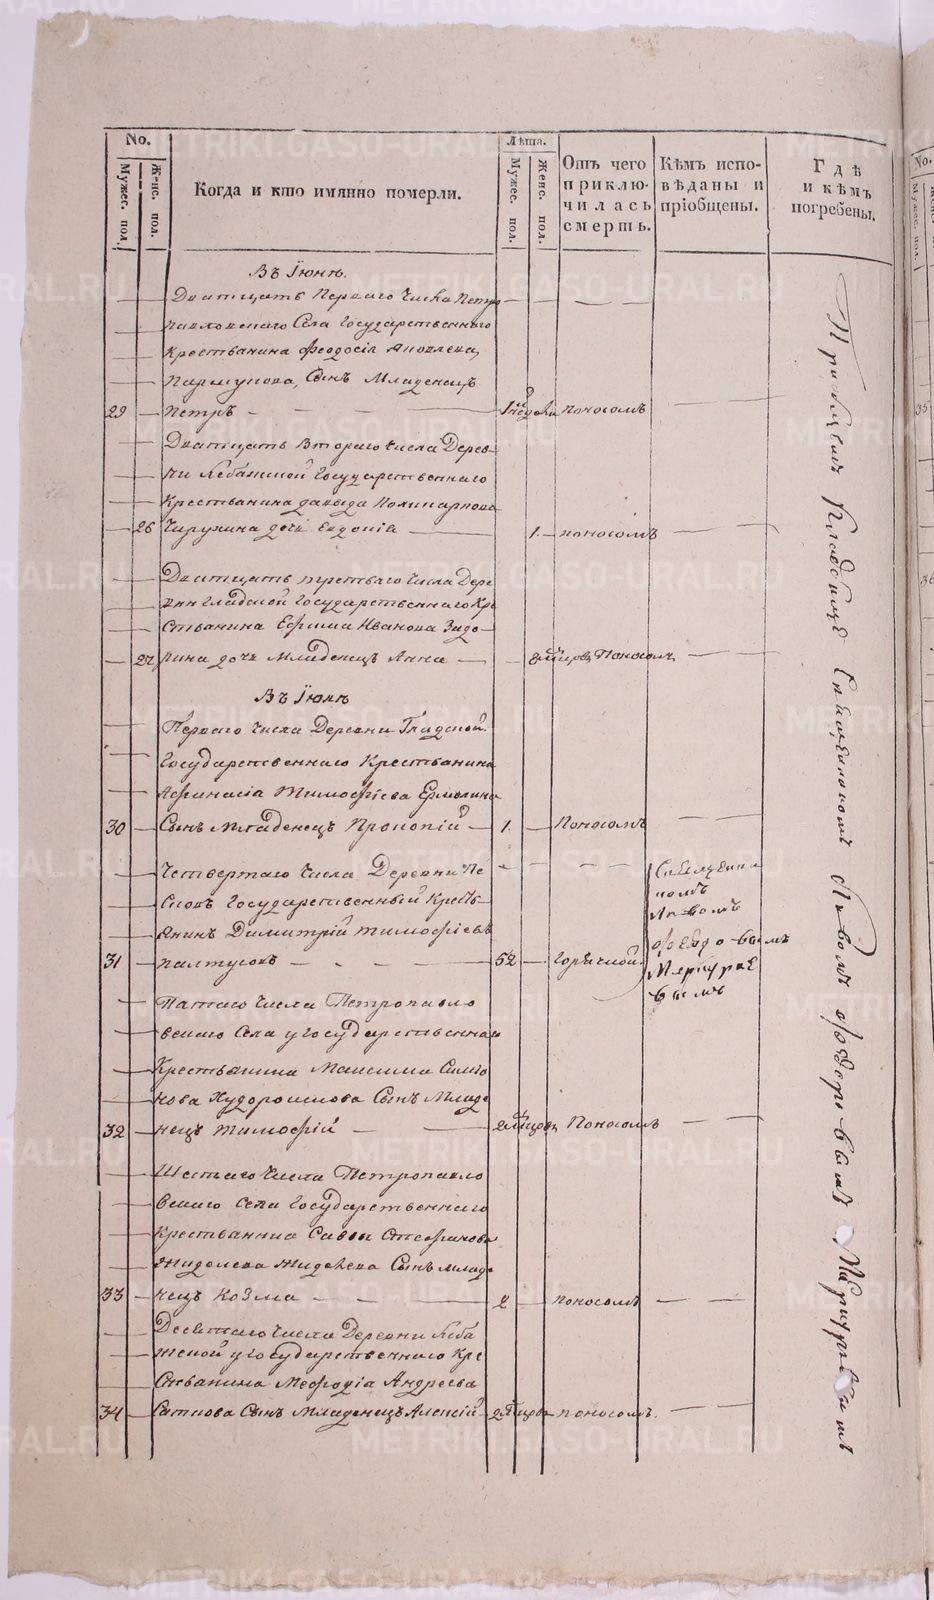 No.
Мужес. пол.
Женс. пол.
Когда и кто имянно померли.
Лѣта.
Мужес. пол.
Женс. пол.
Отъ чего приклю-
чилась
смерть.
Кѣмъ испо-
вѣданы и
пріобщены.
Гдѣ
и кѣмъ
погребены.
Въ Іюнѣ.
Дватцать Перваго числа Петро
павловскаго Села Государственнаго
Крестьянина Феодосія Яковлева
Сынъ Младенецъ
29 Петръ — 1 недели поносомъ
Дватцать Втораго числа Дерев-
ни Государственнаго
Крестьянина давыда Поликарпова
26 дочь Евдокія — 1. — поносомъ
Дватцать третьяго числа Дере
вни Гладской Государственнаго Кре
стьянина Ефима Иванова Задо-
27 рина дочь Младенецъ Анна — Поносомъ
Въ Іюлѣ
Перваго числа Деревни Гладской
Государственнаго Крестьянина
Афанасія Тимофѣева Ермолина
30 Сынъ Младенецъ Прокопій — 1. — Поносомъ
Четвертаго числа Деревни Пе
сковъ Государственный Кресть-
янинъ Димитрій Тимофѣевъ
31 Палтусовъ — 52 — Горячкой
Священни
комъ
Львомъ
Ѳедоровымъ
Меркурье
вымъ
Пятаго числа Петропавло
вскаго Села Государственнаго
Крестьянина Максима Симео
нова Сынъ Младе
32 нецъ Тимофѣй — Поносомъ
Шестаго числа Петропавло
вскаго Села Государственнаго
Крестьянина Саввы Стефанова
Жиделева Сынъ младе
33 нецъ Козма — 2 — поносомъ
Десятаго числа Деревни
Государственнаго Кре
стьянина Мефодія Андреева
34 Сынъ Младенецъ Алексій — поносомъ.
Кладбище Священникомъ Львомъ Ѳедоровымъ Меркурьевымъ